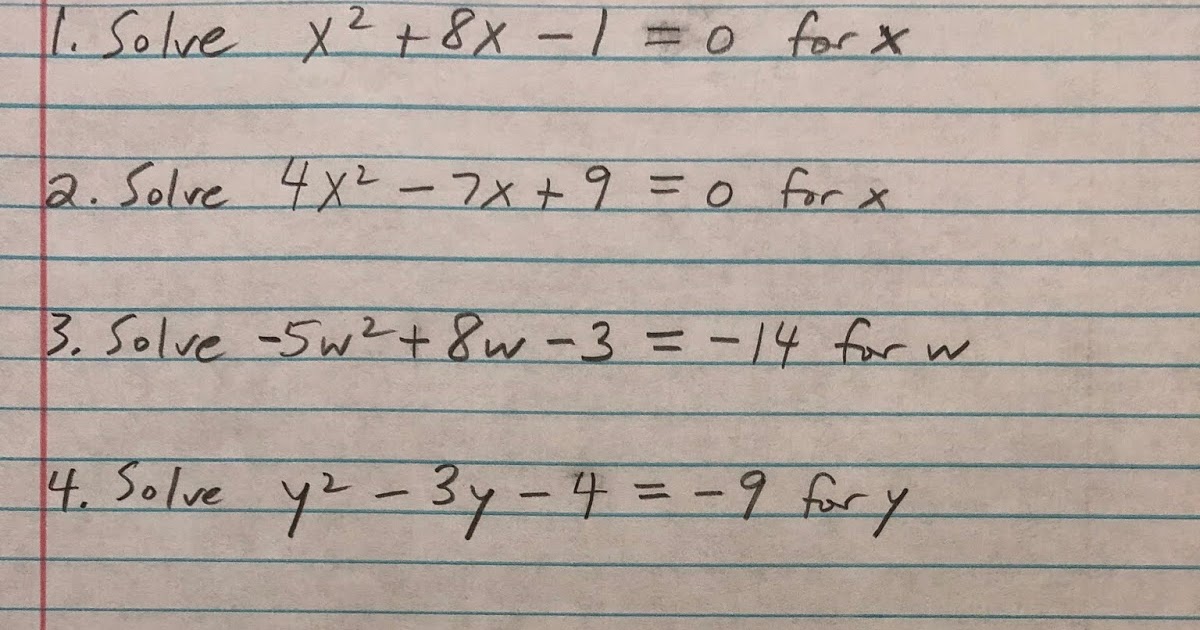 1. Solve x² + 8x - 1 = 0 for x
2. Solve 4x² - 7x + 9 = 0 for x
3. Solve -5w² + 8w - 3 = -14 for w
4. Solve y² - 3y - 4 = -9 for y